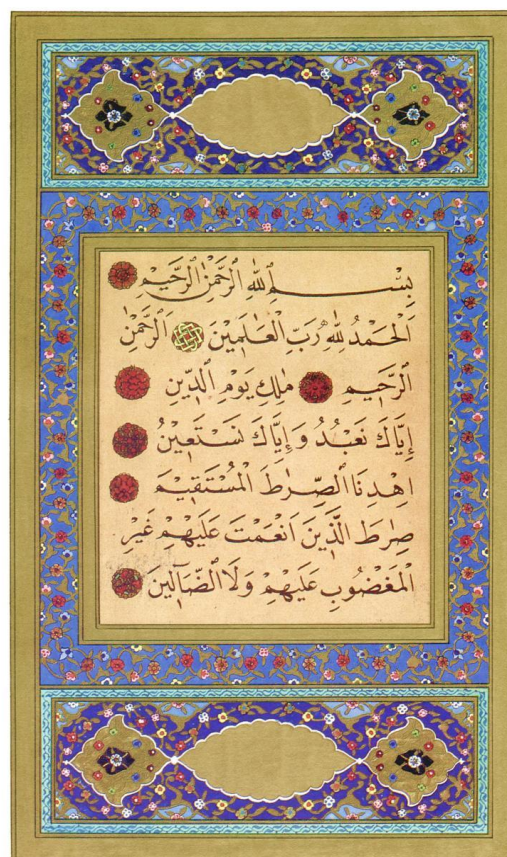 بِسْمِ اللهِ الرَّحْمٰنِ الرَّحِيْمِ
اَلْحَمْدُ لِلهِ رَبِّ الْعَالَمِيْنَ الرَّحْمٰنِ
الرَّحِيْمِ مٰلِكِ يَوْمِ الدِّيْنِ
اِيَّاكَ نَعْبُدُ وَ اِيَّاكَ نَسْتَعِيْنُ
اِهْدِنَا الصِّرٰطَ الْمُسْتَقِيْمَ
صِرٰطَ الَّذِيْنَ اَنْعَمْتَ عَلَيْهِمْ غَيْرِ
الْمَغْضُوبِ عَلَيْهِمْ وَلَا الضَّآلِّيْنَ